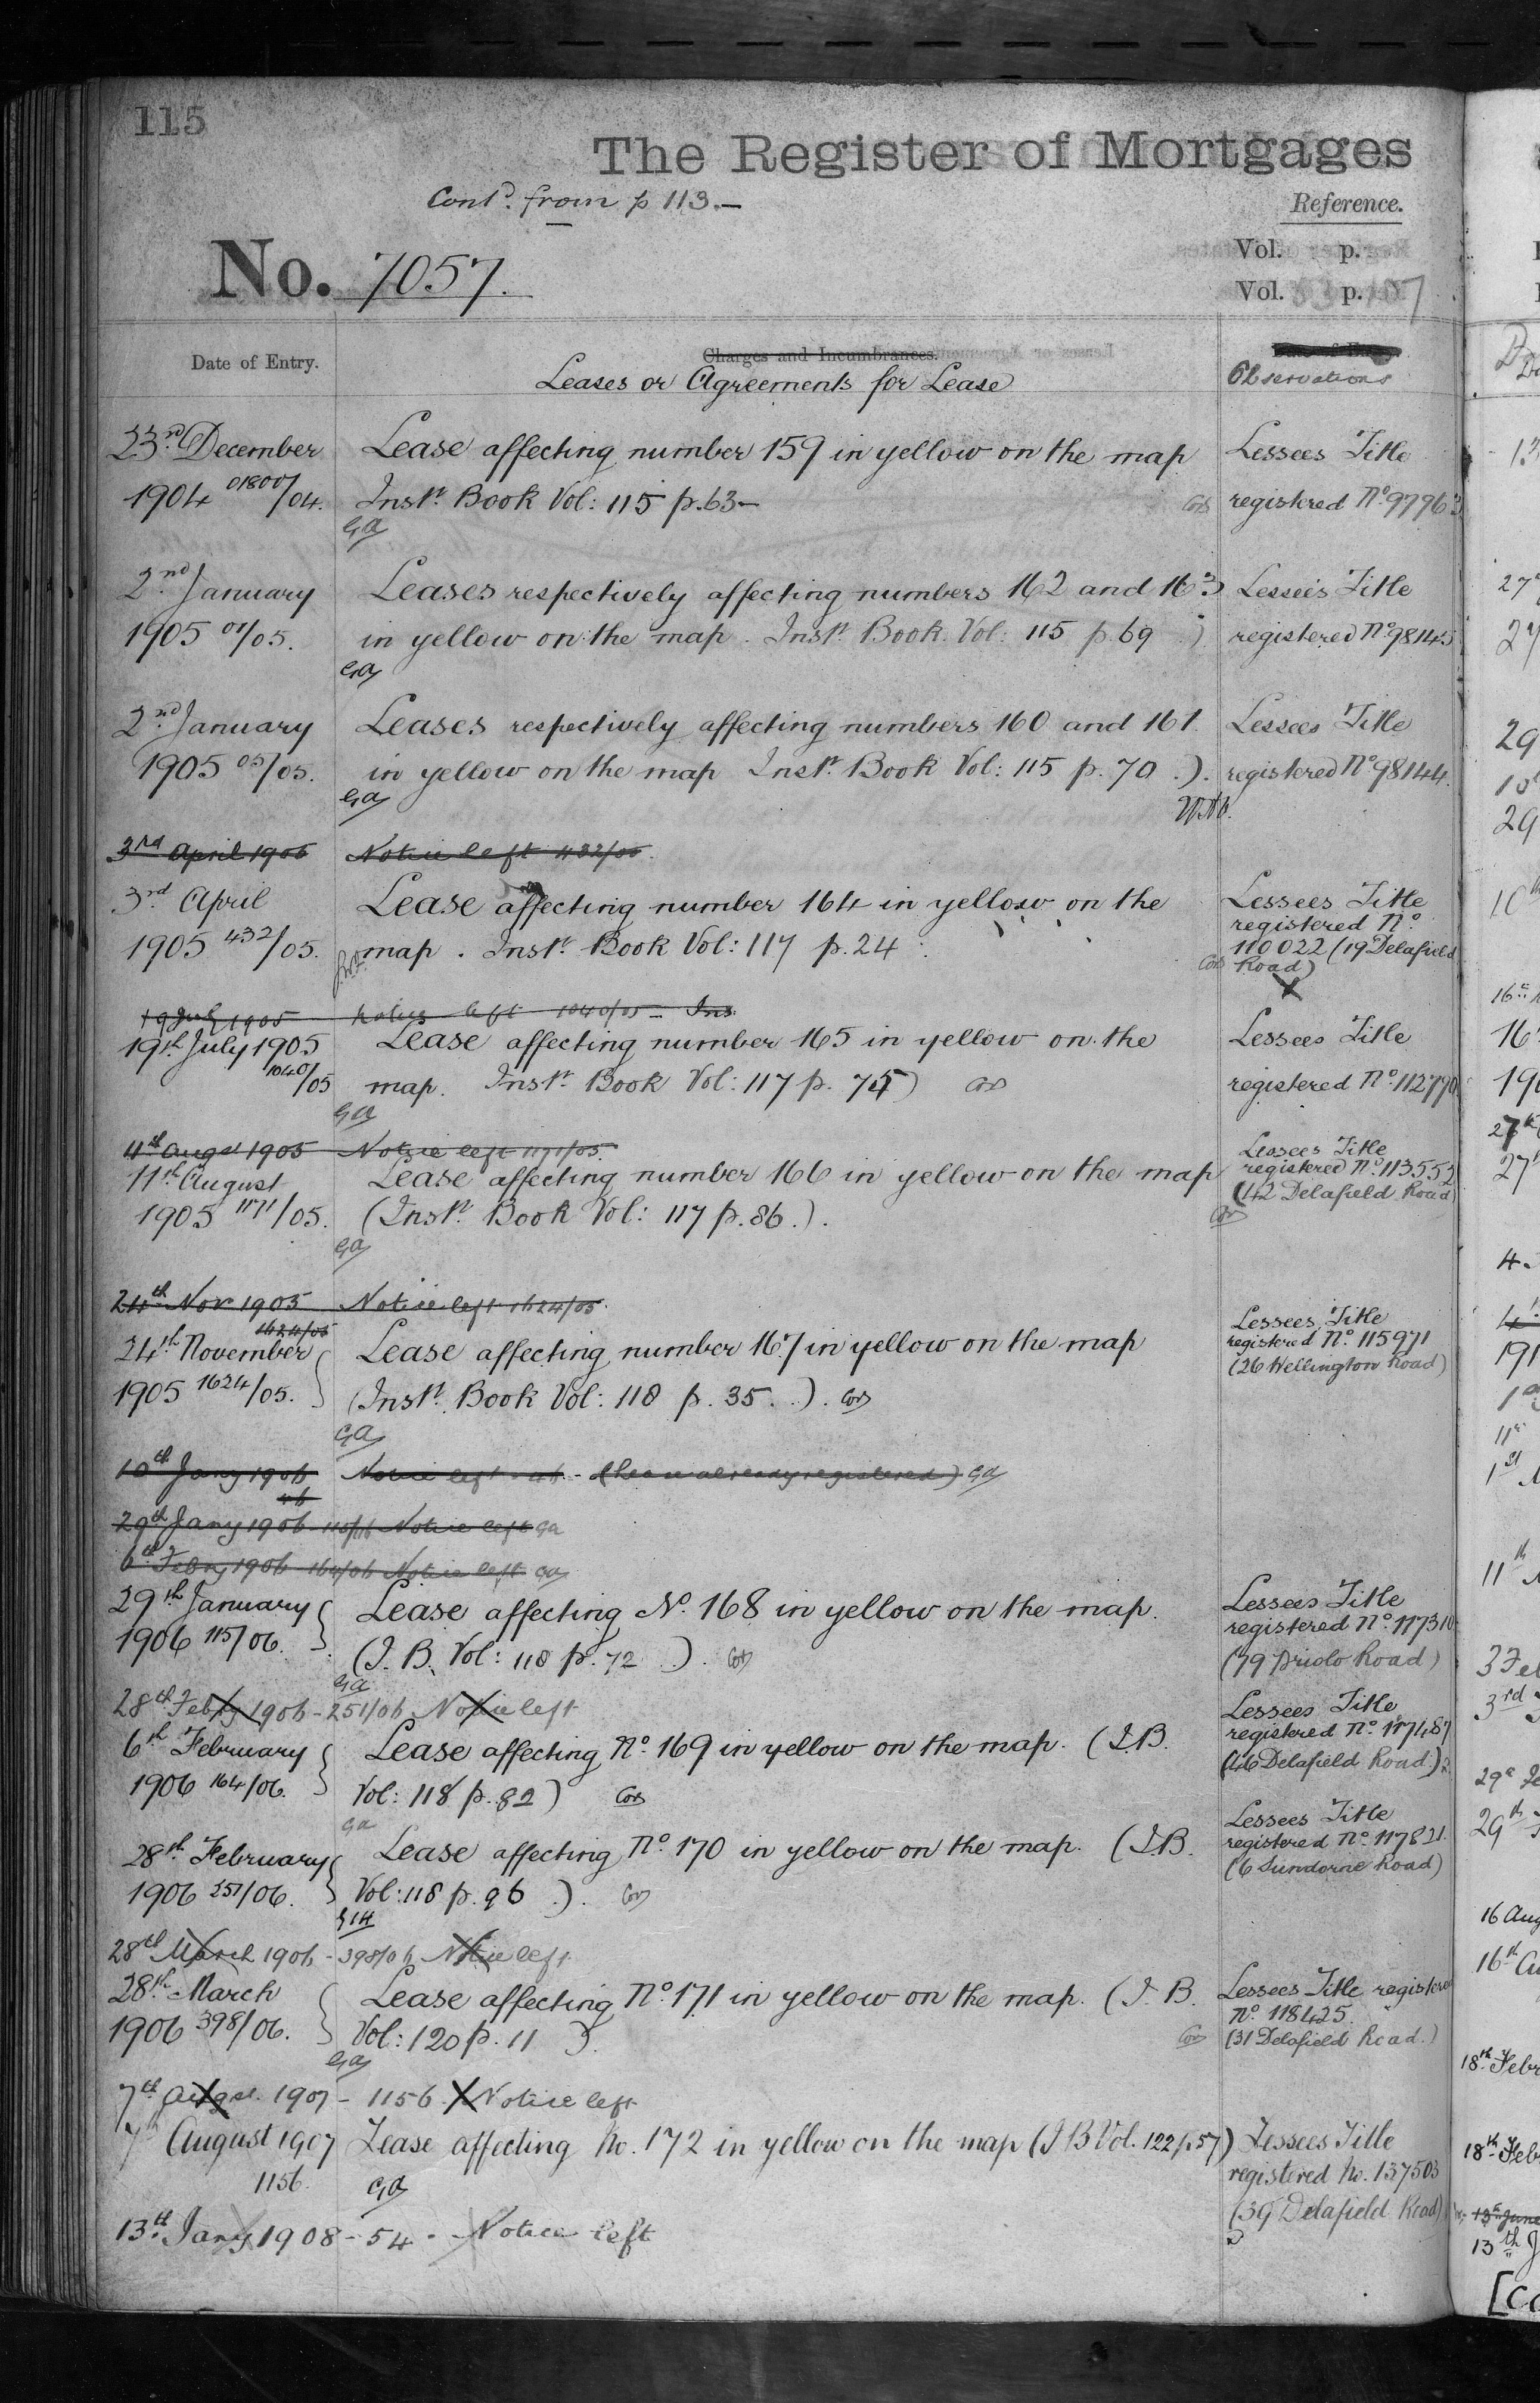 115
The Register of Mortgages
Contd. from p 113.—
Reference.
Vol. p.
No. 7057.
Vol. p.
Date of Entry.
Charges and Incumbrances.
Leases or Agreements for Lease
Observations
23rd December Lease affecting number 159 in yellow on the map Lessees Title
1904 01800/04. Inst. Book Vol: 115 p. 63— registered No. 97963
GA
2nd January Leases respectively affecting numbers 162 and 163 Lessees Title
1905 01/05. in yellow on the map. Inst. Book Vol: 115 p. 69 ) registered No. 98145
GA
2nd January Leases respectively affecting numbers 160 and 161. Lessees Title
1905 05/05. in yellow on the map Inst. Book Vol: 115 p. 70 .). registered No. 98144.
GA
3rd April 1905 Notice left 432/05.
3rd April Lease affecting number 164 in yellow on the Lessees Title
registered No.
1905 432/05. map. Inst. Book Vol: 117 p. 24 110022 (19 Delafield
Road)
19 July 1905 Notice left 1040/05 —
19th July 1905 Lease affecting number 165 in yellow on the Lessees Title
1040/05 map. Inst. Book Vol: 117 p. 75) registered No. 112770
GA
11th Augst 1905 Notice left 1171/05. Lessees Title
11th August Lease affecting number 166 in yellow on the map registered No. 113552
(42 Delafield Road)
1905 1171/05. (Inst. Book Vol: 117 p. 86.).
GA
24th Nov 1905 Notice left 1624/05.
1624/05 Lessees Title
24th November Lease affecting number 167 in yellow on the map registered No. 115971
(26 Wellington Road)
1905 1624/05. (Inst. Book Vol: 118 p. 35. .).
GA
10th Jany 1906 Notice left - (Lease already registered) GA
29th Jany 1906 - 115/06 Notice left GA
6th Febry 1906 164/06 Notice left GA
29th January Lease affecting No. 168 in yellow on the map. Lessees Title
registered No. 117310
1906 115/06. (I.B. Vol: 118 p. 72 ). (79 Priolo Road)
GA
28th Febry 1906 - 251/06 Notice left Lessees Title
6th February Lease affecting No. 169 in yellow on the map. (I.B. registered No. 117487
(46 Delafield Road.)
1906 164/06. Vol: 118 p. 82)
GA Lessees Title
28th February Lease affecting No. 170 in yellow on the map. (I.B. registered No. 117821.
(6 Sundorne Road)
1906 251/06. Vol: 118 p. 96 ).
28th March 1906 - 398/06 Notice left
28th March Lease affecting No. 171 in yellow on the map. (I.B. Lessees Title registered
No. 118425.
1906 398/06. Vol: 120 p. 11 ). (31 Delafield Road.)
GA
7th Augst. 1907 - 1156. Notice left
7th August 1907 Lease affecting No. 172 in yellow on the map (I B Vol. 122 p 57) Lessees Title
1156. GA registered No. 137503
(39 Delafield Road)
13th Jany 1908 - 54 - Notice left